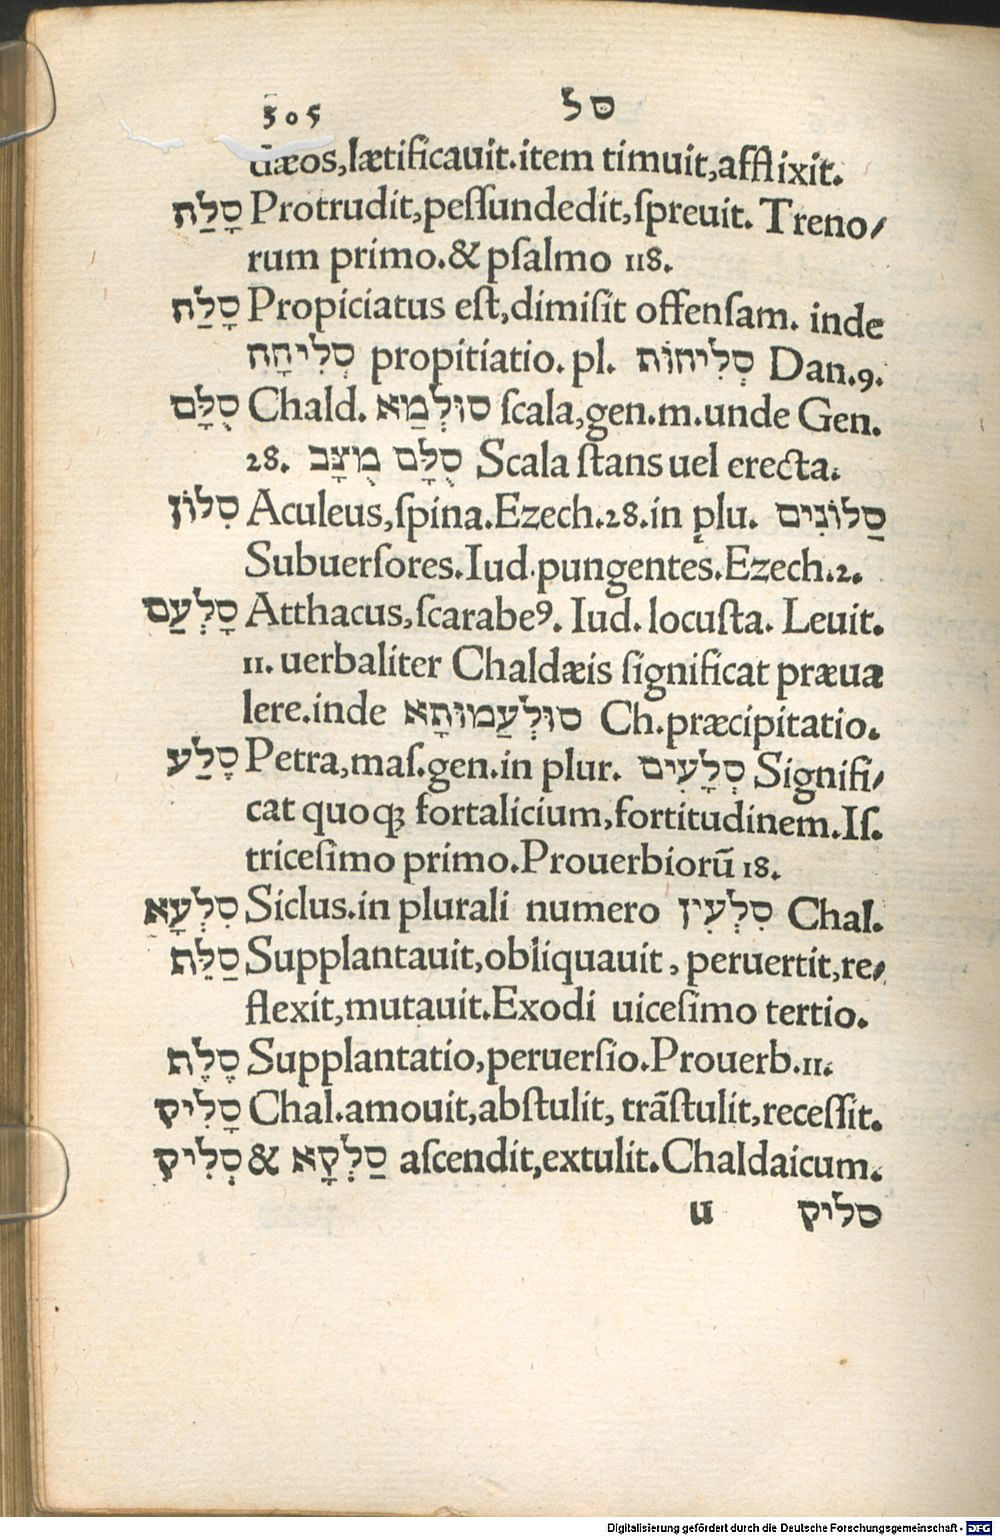 305 סל
dæos,lætificauit.item timuit,afflixit.
סָלַת Protrudit,peſſundedit,ſpreuit. Treno⸗
rum primo.& pſalmo 118.
סָלַח Propiciatus eſt,dimiſit offenſam. inde
סְלִיחָה propitiatio. pl. סְלִיחוֹת Dan.9.
סֻלָּם Chald. סוּלְמַא ſcala,gen.m.unde Gen.
28. סֻלָּם מֻצָּב Scala ſtans uel erecta.
סִלוֹן Aculeus,ſpina.Ezech.28.in plu. סַלוֹנִים
Subuerſores.Iud.pungentes.Ezech.2.
סָלְעַם Atthacus,ſcarabeꝰ. Iud. locuſta. Leuit.
11. uerbaliter Chaldæis ſignificat præua
lere.inde סוּלְעַמוּתָא Ch.præcipitatio.
סֶלַע Petra,maſ.gen.in plur. סְלָעִים Signifi⸗
cat quoqꝫ fortalicium,fortitudinem.Iſ.
triceſimo primo.Prouerbiorū 18.
סִלְעָא Siclus.in plurali numero סִלְעִין Chal.
סַלֵּת Supplantauit,obliquauit, peruertit,re⸗
flexit,mutauit.Exodi uiceſimo tertio.
סֶלֶת Supplantatio,peruerſio.Prouerb.11.
סָלִיק Chal.amouit,abſtulit, trāſtulit,receſſit.
סְלִיק & סַלְקָא aſcendit,extulit.Chaldaicum.
u סליק
Digitalisierung gefördert durch die Deutsche Forschungsgemeinschaft - DFG